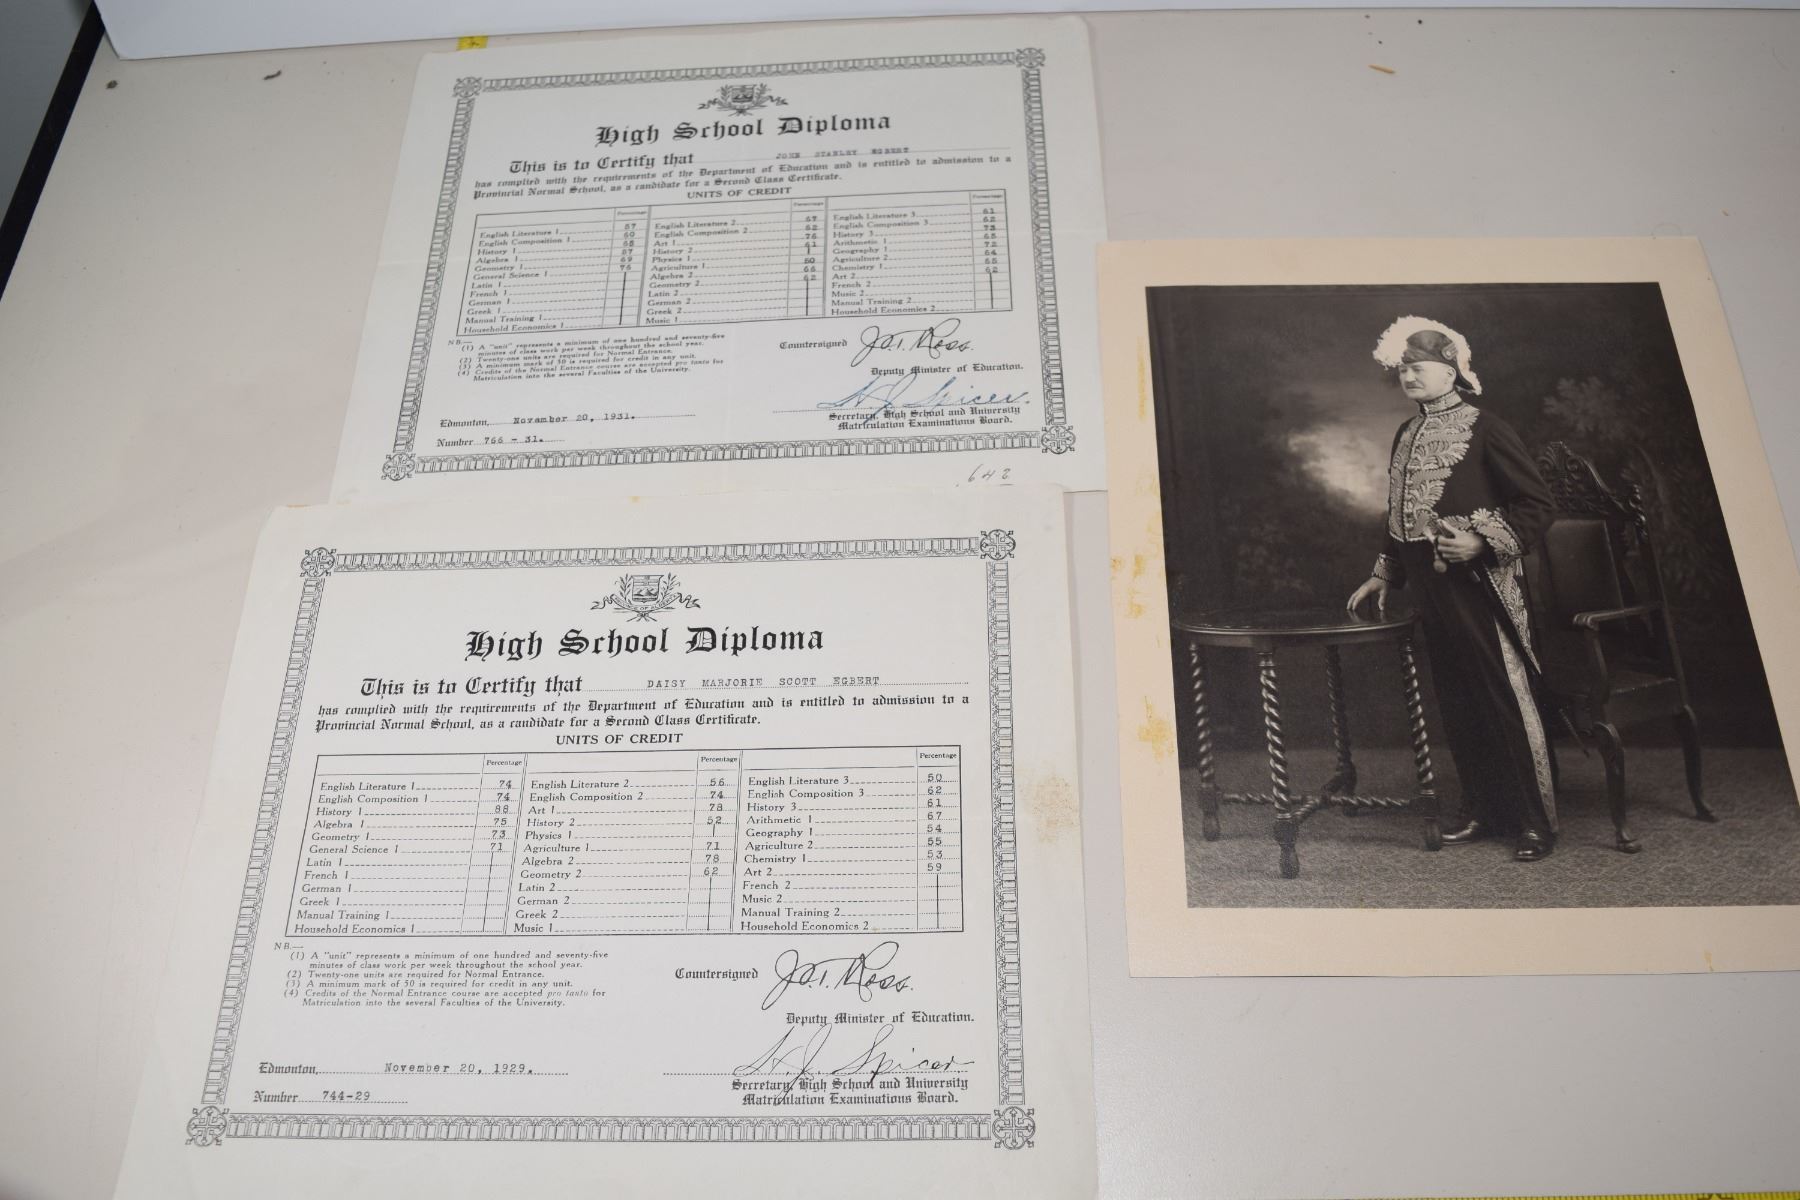 High School Diploma
This is to Certify that JOHN STANLEY EGBERT
has complied with the requirements of the Department of Education and is entitled to admission to a
Provincial Normal School, as a candidate for a Second Class Certificate.
UNITS OF CREDIT
Percentage Percentage Percentage
English Literature 1 57 English Literature 2 67 English Literature 3 51
English Composition 1 60 English Composition 2 62 English Composition 3 62
History 1 68 Art 1 76 History 3 73
Algebra 1 57 History 2 61 Arithmetic 1 65
Geometry 1 69 Physics 1 Geography 1 72
General Science 1 76 Agriculture 1 50 Agriculture 2 64
Latin 1 Algebra 2 66 Chemistry 1 55
French 1 Geometry 2 62 Art 2 62
German 1 Latin 2 French 2
Greek 1 German 2 Music 2
Manual Training 1 Greek 2 Manual Training 2
Household Economics 1 Music 1 Household Economics 2
N.B.—
(1) A "unit" represents a minimum of one hundred and seventy-five
minutes of class work per week throughout the school year.
(2) Twenty-one units are required for Normal Entrance.
(3) A minimum mark of 50 is required for credit in any unit.
(4) Credits of the Normal Entrance course are accepted pro tanto for
Matriculation into the several Faculties of the University.
Countersigned J.T. Ross.
Deputy Minister of Education.
H J Spicer.
Secretary, High School and University
Matriculation Examinations Board.
Edmonton, November 20, 1931.
Number 766 - 31.
642
High School Diploma
This is to Certify that DAISY MARJORIE SCOTT EGBERT
has complied with the requirements of the Department of Education and is entitled to admission to a
Provincial Normal School, as a candidate for a Second Class Certificate.
UNITS OF CREDIT
Percentage Percentage Percentage
English Literature 1 74 English Literature 2 56 English Literature 3 50
English Composition 1 74 English Composition 2 74 English Composition 3 62
History 1 88 Art 1 78 History 3 61
Algebra 1 75 History 2 52 Arithmetic 1 67
Geometry 1 73 Physics 1 Geography 1 54
General Science 1 71 Agriculture 1 71 Agriculture 2 55
Latin 1 Algebra 2 78 Chemistry 1 53
French 1 Geometry 2 62 Art 2 59
German 1 Latin 2 French 2
Greek 1 German 2 Music 2
Manual Training 1 Greek 2 Manual Training 2
Household Economics 1 Music 1 Household Economics 2
N.B.—
(1) A "unit" represents a minimum of one hundred and seventy-five
minutes of class work per week throughout the school year.
(2) Twenty-one units are required for Normal Entrance.
(3) A minimum mark of 50 is required for credit in any unit.
(4) Credits of the Normal Entrance course are accepted pro tanto for
Matriculation into the several Faculties of the University.
Countersigned J.T. Ross.
Deputy Minister of Education.
H J Spicer
Secretary, High School and University
Matriculation Examinations Board.
Edmonton, November 20, 1929.
Number 744-29